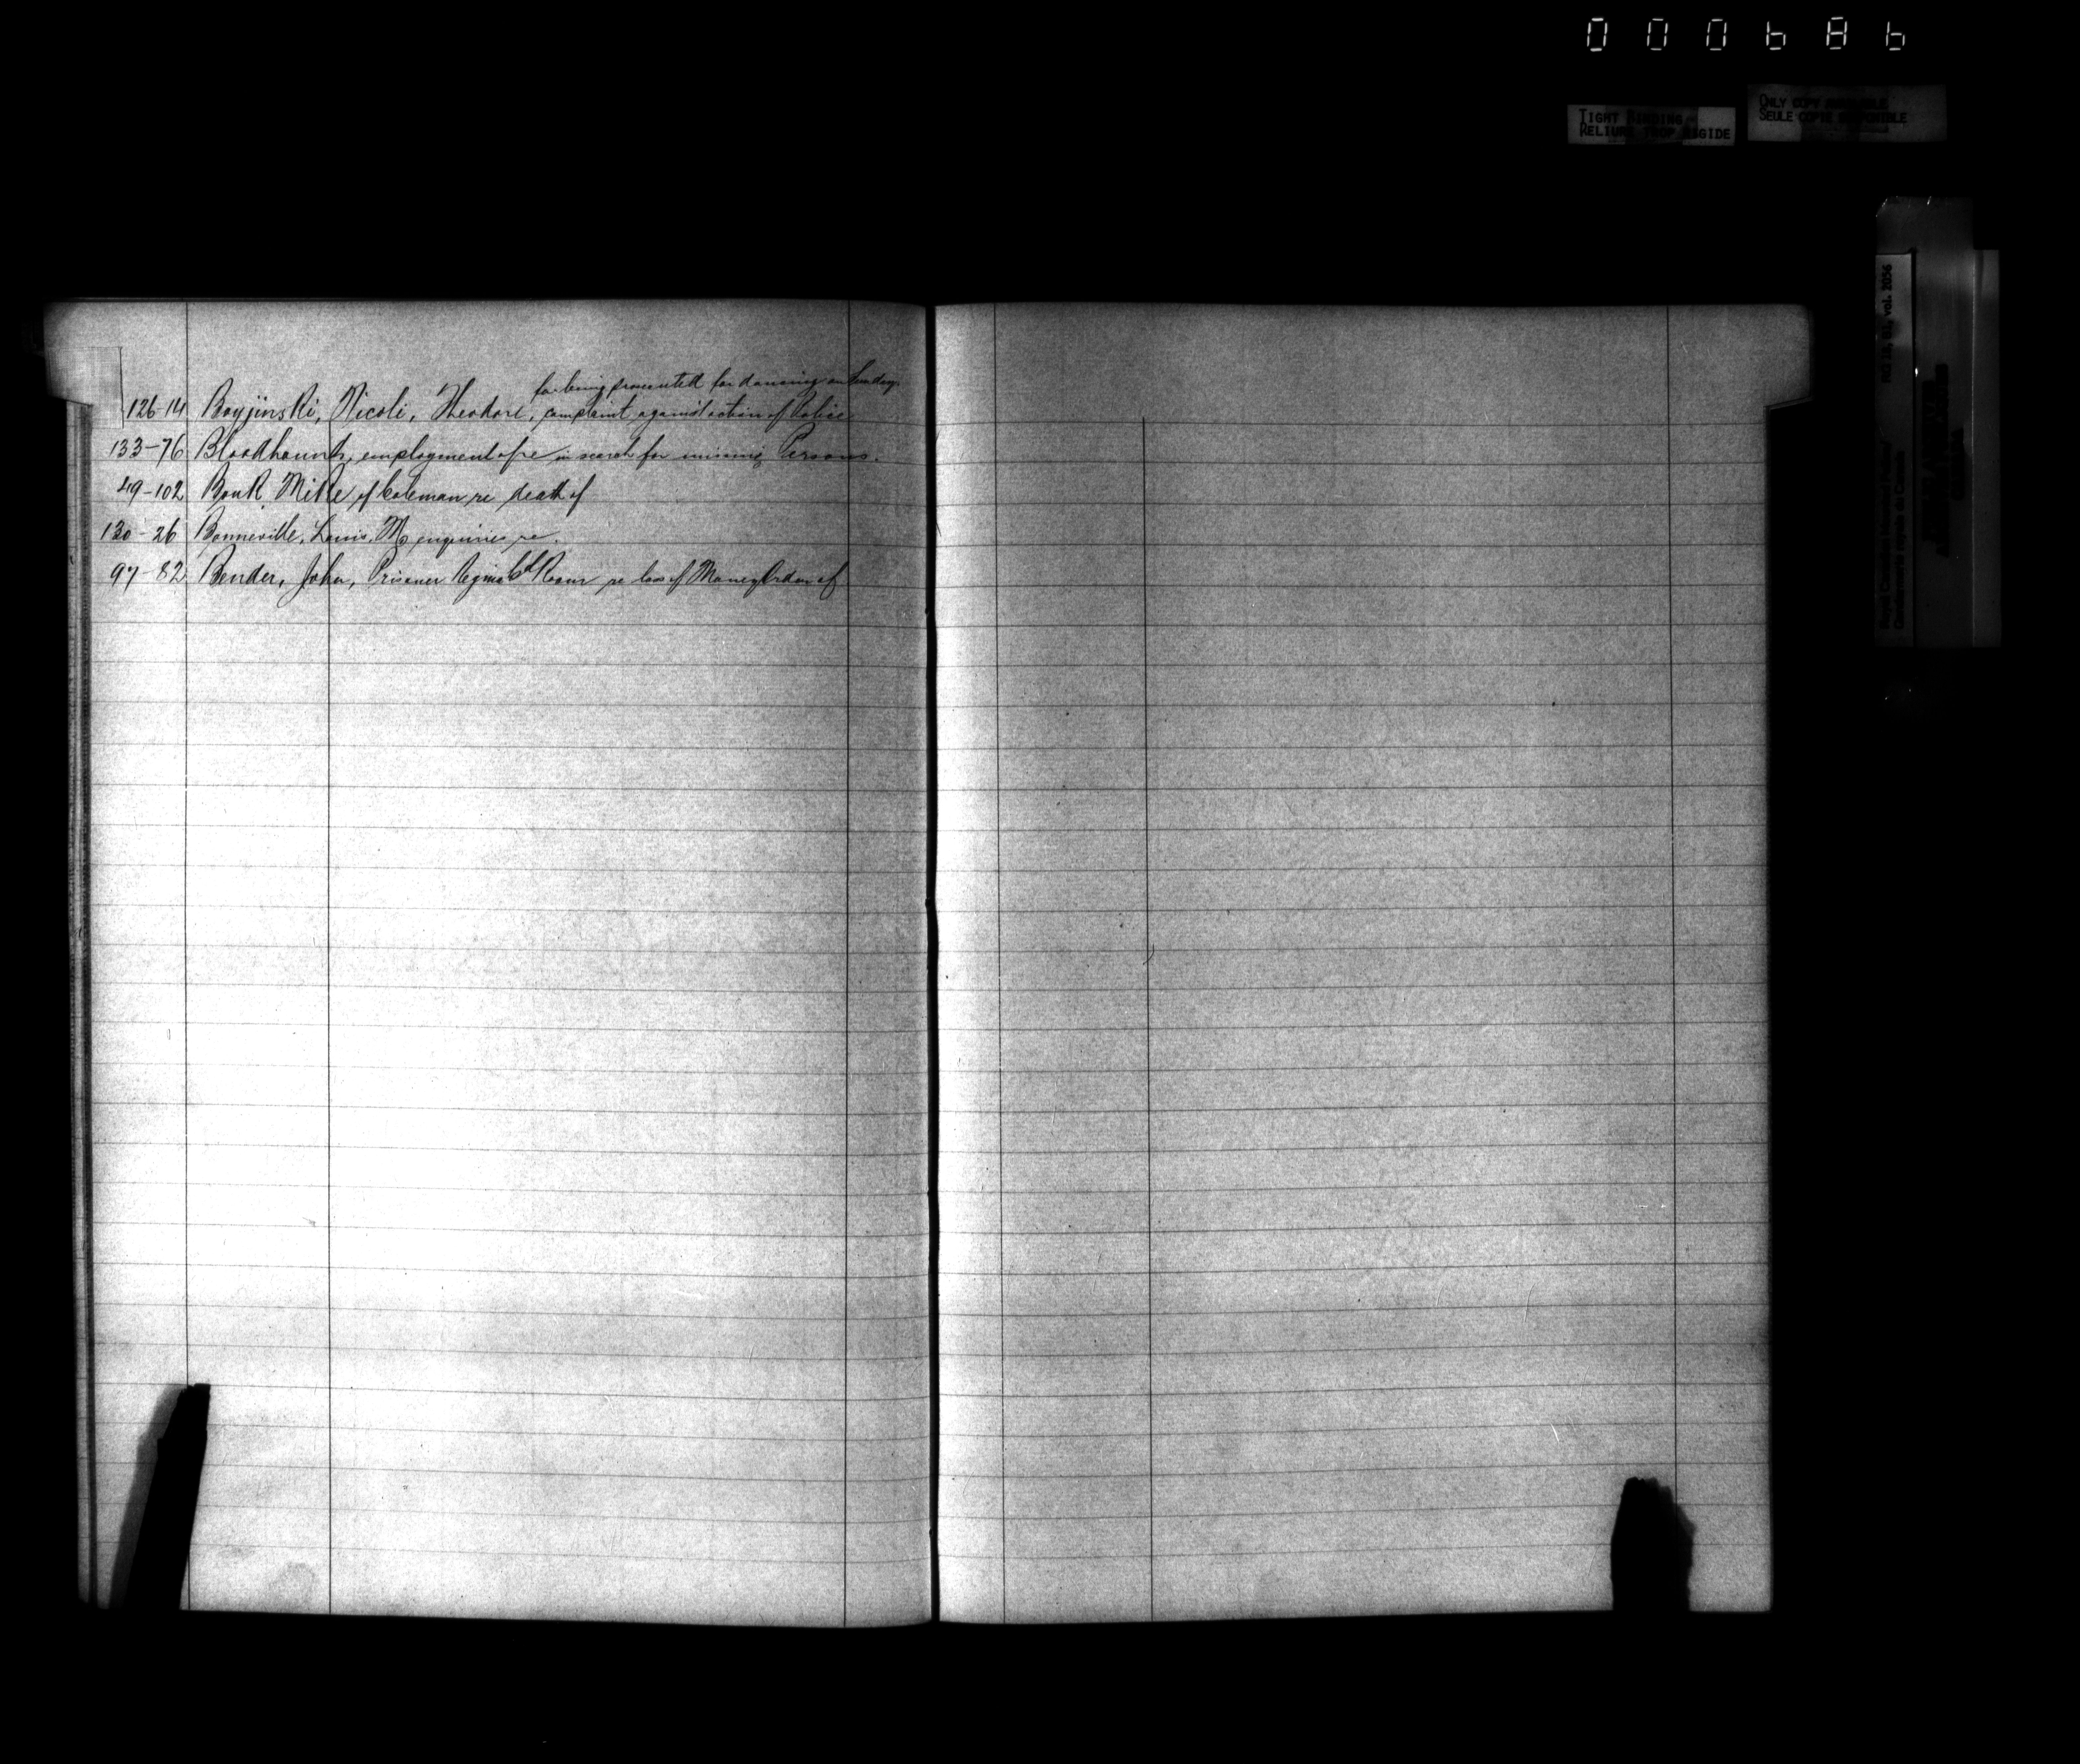 000686
TIGHT BINDING
RELIURE TROP RIGIDE
ONLY COPY AVAILABLE
SEULE COPIE DISPONIBLE
RG 18, B1, vol. 2056
Royal Canadian Mounted Police/
Gendarmerie royale du Canada
for being prosecuted for dancing on Sunday.
126-14 Boyjinski, Nicoli, Theodore, complaint against action of Police
133-76 Bloodhounds, employment of re in search for missing Persons.
49-102 Bouk Mike of Coleman re death of
130-26 Bonneville, Louis, M enquiries re.
97-82 Bender, John, Prisoner Regina Gd Room re loss of Money Order of